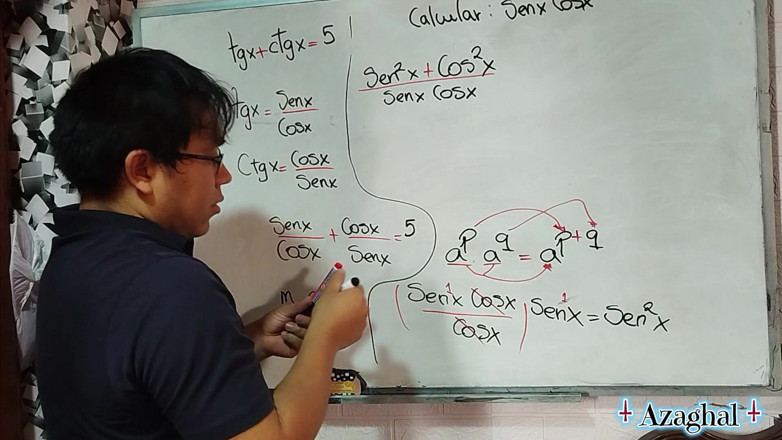 Calcular: Senx Cosx
tgx + ctgx = 5
tgx = Senx / Cosx
Ctgx = Cosx / Senx
Senx / Cosx + Cosx / Senx = 5
m
Sen²x + Cos²x / Senx Cosx
aᵖ a^q = a^(p+q)
( Sen¹x Cosx / Cosx ) Sen¹x = Sen²x
Azaghal